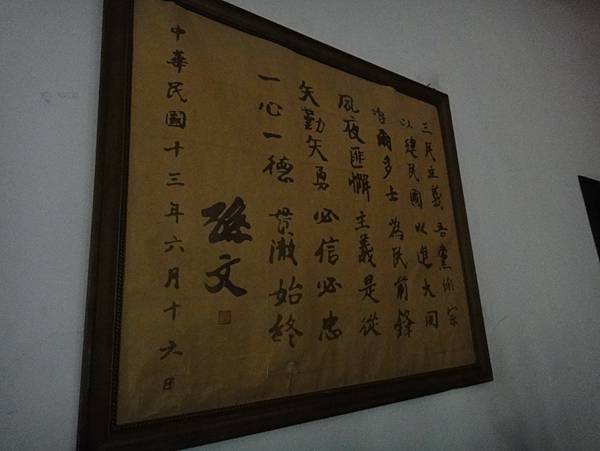 三民主義吾黨所宗
以建民國以進大同
咨爾多士為民前鋒
夙夜匪懈主義是從
矢勤矢勇必信必忠
一心一德貫澈始終
孫文
中華民國十三年六月十六日